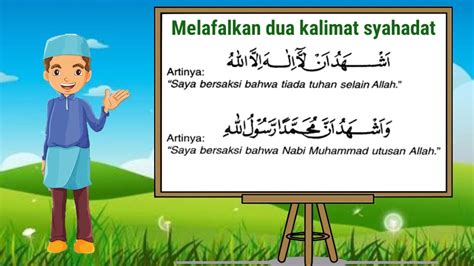 Melafalkan dua kalimat syahadat
اَشْهَدُ اَنْ لَآ اِلٰهَ اِلَّا اللّٰهُ
Artinya:
"Saya bersaksi bahwa tiada tuhan selain Allah."
وَاَشْهَدُ اَنَّ مُحَمَّدًا رَسُوْلُ اللّٰهِ
Artinya:
"Saya bersaksi bahwa Nabi Muhammad utusan Allah."